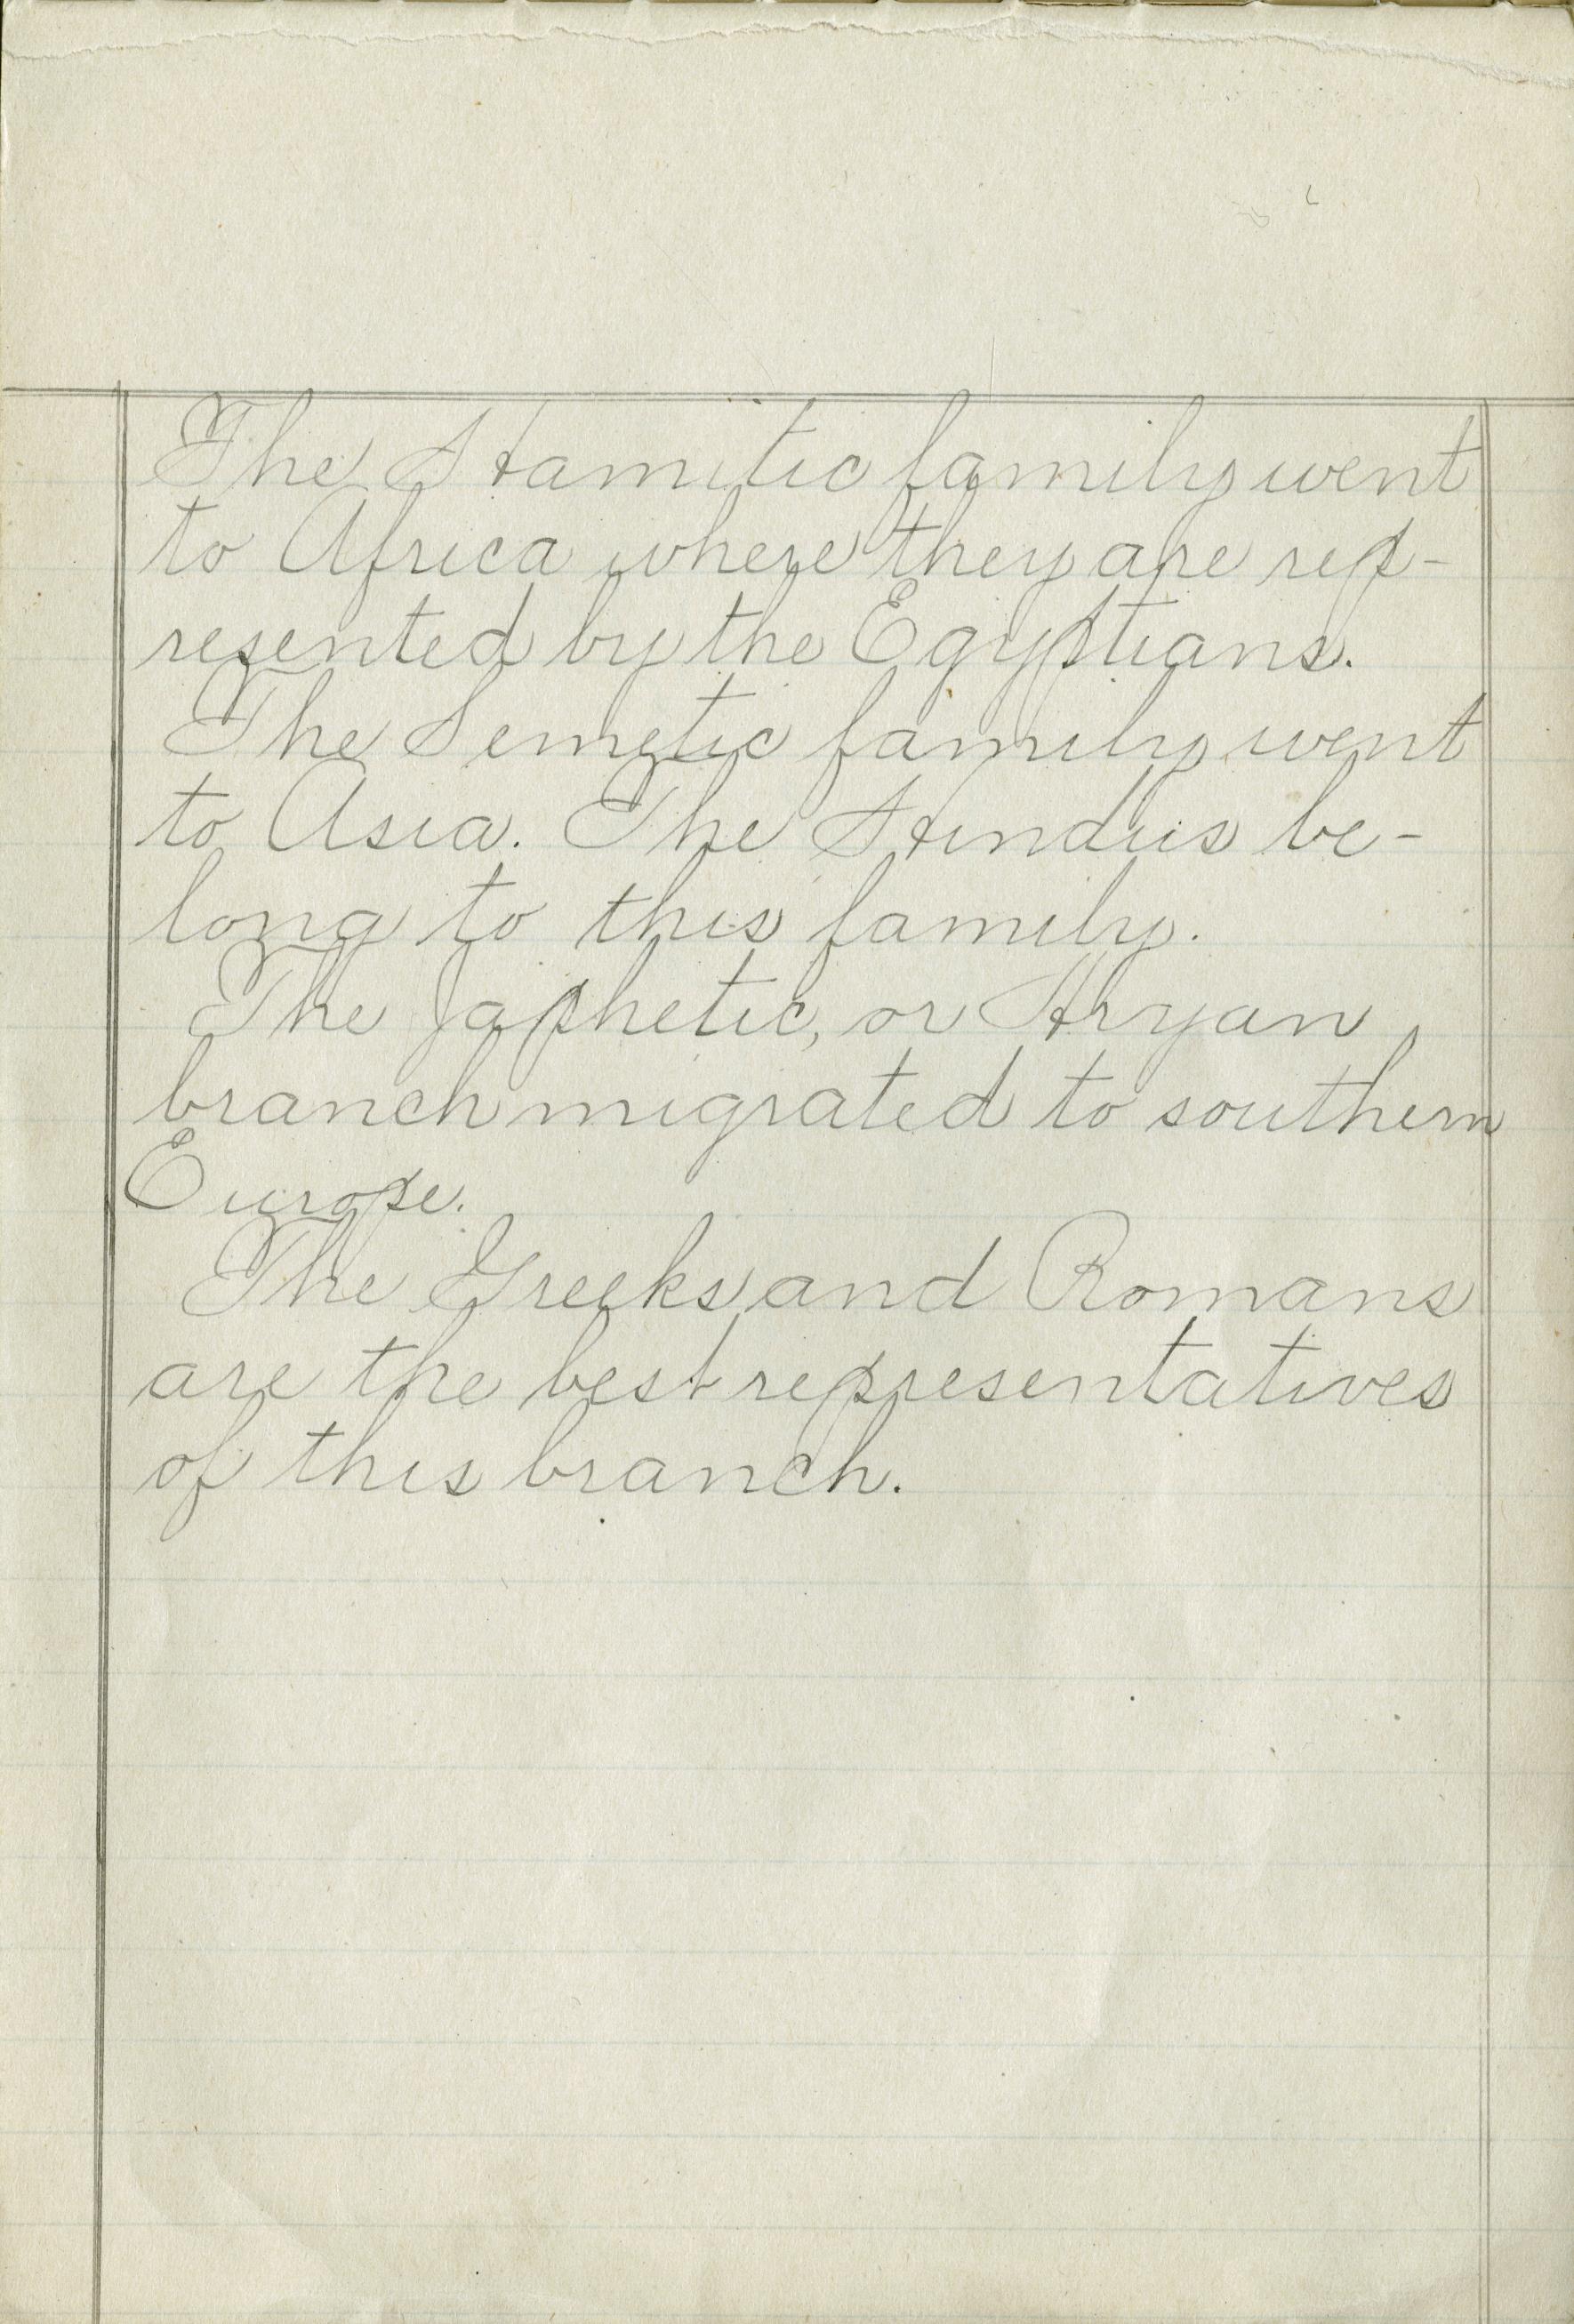 The Hamitic family went
to Africa where they are rep-
resented by the Egyptians.
The Semetic family went
to Asia. The Hindus be-
long to this family.
The Japhetic, or Aryan
branch migrated to southern
Europe.
The Greeks and Romans
are the best representatives
of this branch.